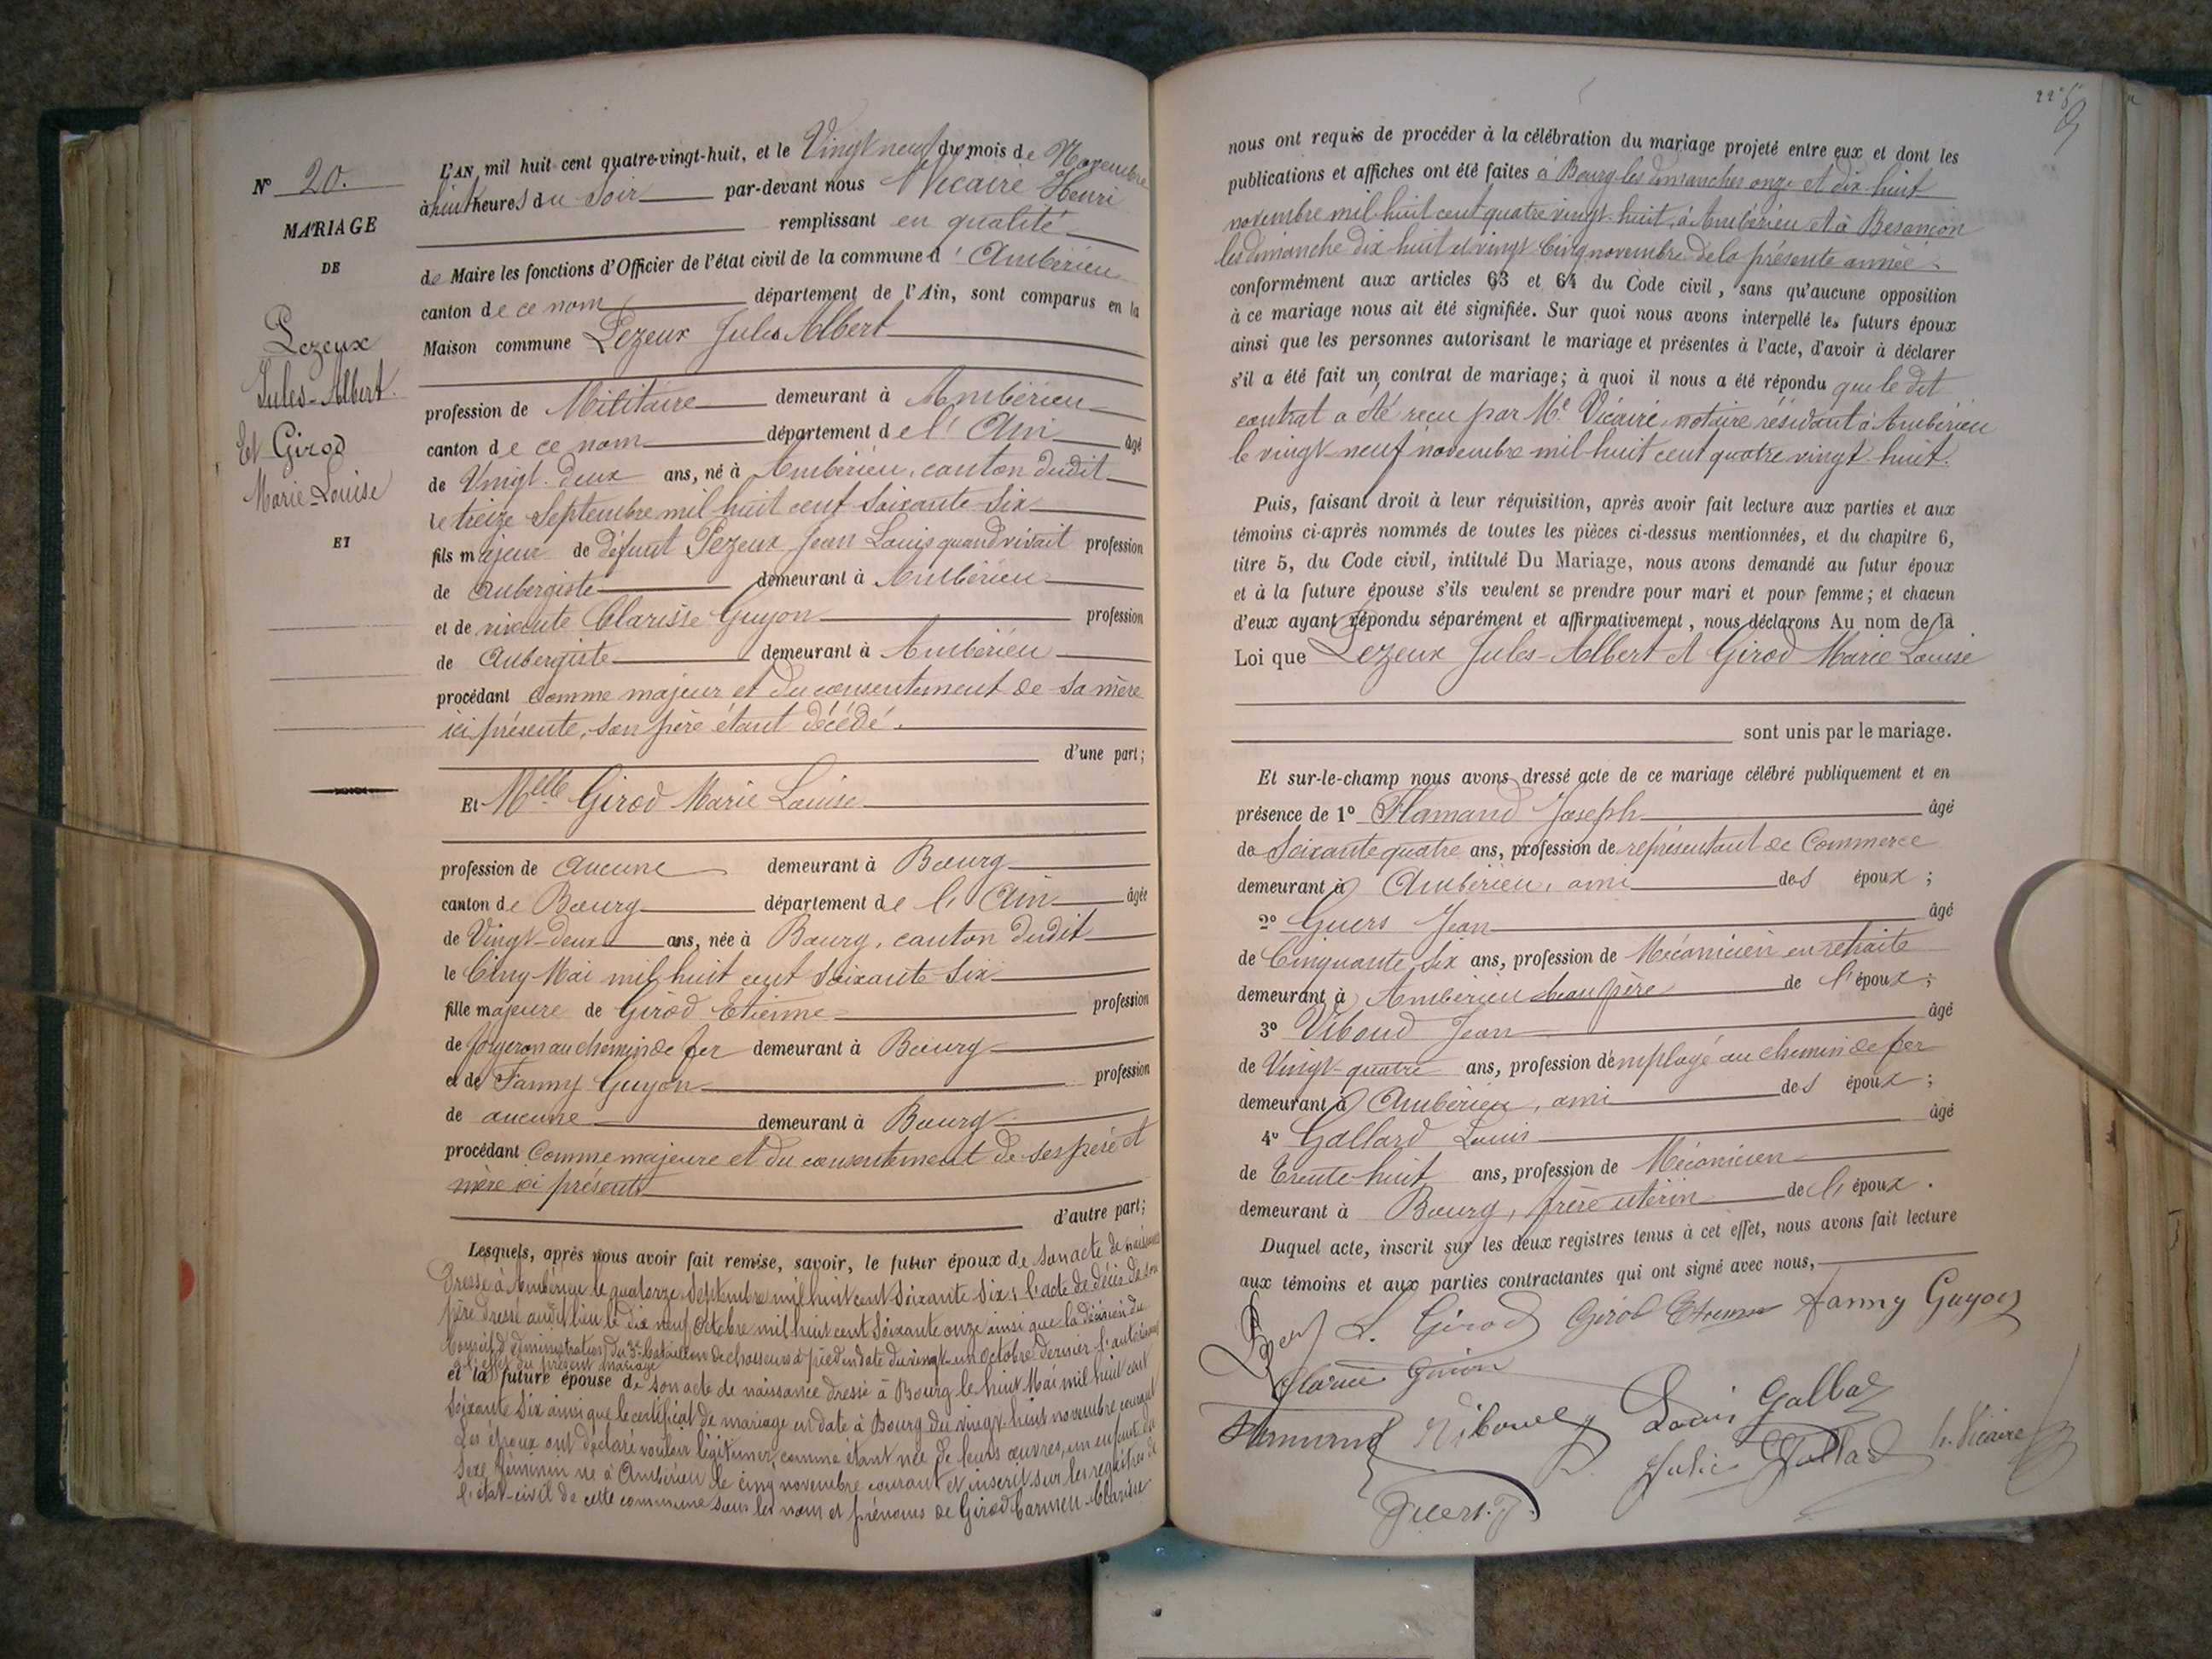 N° 20.
MARIAGE
DE
Pezeux
Jules-Albert.
Et Girod
Marie-Louise
ET
L'AN mil huit cent quatre-vingt-huit, et le Vingt neuf du mois de Novembre
à huit heures du soir par-devant nous Vicaire Henri
remplissant en qualité
de Maire les fonctions d'Officier de l'état civil de la commune d'Ambérieu
canton de ce nom département de l'Ain, sont comparus en la
Maison commune Pezeux Jules Albert
profession de Militaire demeurant à Ambérieu
canton de ce nom département de l'Ain âgé
de Vingt-deux ans, né à Ambérieu, canton dudit
le treize Septembre mil huit cent soixante-six
fils majeur de défunt Pezeux Jean Louis quand vivait profession
de Aubergiste demeurant à Ambérieu
et de vivante Clarisse Guyon profession
de Aubergiste demeurant à Ambérieu
procédant comme majeur et du consentement de sa mère
ici présente, son père étant décédé.
d'une part;
Et Melle Girod Marie Louise
profession de aucune demeurant à Bourg
canton de Bourg département de l'Ain âgée
de Vingt-deux ans, née à Bourg, canton dudit
le Cinq Mai mil huit cent soixante-six
fille majeure de Girod Etienne profession
de forgeron au chemin de fer demeurant à Bourg
et de Fanny Guyon profession
de aucune demeurant à Bourg
procédant comme majeure et du consentement de ses père et
mère ici présents
d'autre part;
Lesquels, après nous avoir fait remise, savoir, le futur époux de son acte de naissance
dressé à Ambérieu le quatorze Septembre mil huit cent soixante six; l'acte de décès de son
père dressé audit lieu le dix neuf octobre mil huit cent soixante onze ainsi que la décision du
Conseil d'administration du 3e Bataillon de chasseurs à pied en date du vingt-un octobre dernier l'autorisant
à l'effet du présent mariage
et la future épouse de son acte de naissance dressé à Bourg le huit Mai mil huit cent
soixante six ainsi que le certificat de mariage en date à Bourg du vingt-huit novembre courant
Les époux ont déclaré vouloir légitimer, comme étant née de leurs œuvres, un enfant du
sexe féminin né à Ambérieu le cinq novembre courant et inscrit sur les registres de
l'état-civil de cette commune sous les nom et prénoms de Girod Carmen-Clarisse
nous ont requis de procéder à la célébration du mariage projeté entre eux et dont les
publications et affiches ont été faites à Bourg les dimanches onze et dix-huit
novembre mil huit cent quatre vingt-huit, à Ambérieu et à Besançon
les dimanche dix huit et vingt cinq novembre de la présente année
conformément aux articles 63 et 64 du Code civil, sans qu'aucune opposition
à ce mariage nous ait été signifiée. Sur quoi nous avons interpellé les futurs époux
ainsi que les personnes autorisant le mariage et présentes à l'acte, d'avoir à déclarer
s'il a été fait un contrat de mariage; à quoi il nous a été répondu que le dit
contrat a été reçu par Me Vicaire, notaire résidant à Ambérieu
le vingt neuf novembre mil huit cent quatre vingt huit.
Puis, faisant droit à leur réquisition, après avoir fait lecture aux parties et aux
témoins ci-après nommés de toutes les pièces ci-dessus mentionnées, et du chapitre 6,
titre 5, du Code civil, intitulé Du Mariage, nous avons demandé au futur époux
et à la future épouse s'ils veulent se prendre pour mari et pour femme; et chacun
d'eux ayant répondu séparément et affirmativement, nous déclarons Au nom de la
Loi que Pezeux Jules-Albert et Girod Marie Louise
sont unis par le mariage.
Et sur-le-champ nous avons dressé acte de ce mariage célébré publiquement et en
présence de 1° Flamand Joseph âgé
de Soixante quatre ans, profession de représentant de Commerce
demeurant à Ambérieu, ami des époux;
2° Guers Jean âgé
de Cinquante six ans, profession de Mécanicien en retraite
demeurant à Ambérieu beau père de l'époux;
3° Viboud Jean âgé
de Vingt-quatre ans, profession d'employé au chemin de fer
demeurant à Ambérieu, ami des époux;
4° Gallard Louis âgé
de Trente-huit ans, profession de Mécanicien
demeurant à Bourg, frère utérin de l'époux.
Duquel acte, inscrit sur les deux registres tenus à cet effet, nous avons fait lecture
aux témoins et aux parties contractantes qui ont signé avec nous,
L. Girod Girod Etienne Fanny Guyon
Guion
Viboud Louis Gallard
Julie Gallard h. Vicaire
Guers. J.